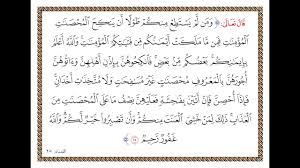 قَالَ تَعَالَى: ﴿ وَمَن لَّمْ يَسْتَطِعْ مِنكُمْ طَوْلًا أَن يَنكِحَ ٱلْمُحْصَنَٰتِ
ٱلْمُؤْمِنَٰتِ فَمِن مَّا مَلَكَتْ أَيْمَٰنُكُم مِّن فَتَيَٰتِكُمُ ٱلْمُؤْمِنَٰتِ وَٱللَّهُ أَعْلَمُ
بِإِيمَٰنِكُم بَعْضُكُم مِّنۢ بَعْضٍ فَٱنكِحُوهُنَّ بِإِذْنِ أَهْلِهِنَّ وَءَاتُوهُنَّ
أُجُورَهُنَّ بِٱلْمَعْرُوفِ مُحْصَنَٰتٍ غَيْرَ مُسَٰفِحَٰتٍ وَلَا مُتَّخِذَٰتِ أَخْدَانٍ
فَإِذَآ أُحْصِنَّ فَإِنْ أَتَيْنَ بِفَٰحِشَةٍ فَعَلَيْهِنَّ نِصْفُ مَا عَلَى ٱلْمُحْصَنَٰتِ مِنَ
ٱلْعَذَابِ ذَٰلِكَ لِمَنْ خَشِىَ ٱلْعَنَتَ مِنكُمْ وَأَن تَصْبِرُوا۟ خَيْرٌ لَّكُمْ وَٱللَّهُ
غَفُورٌ رَّحِيمٌ ﴿٢٥﴾ ﴾ النساء: ٢٥